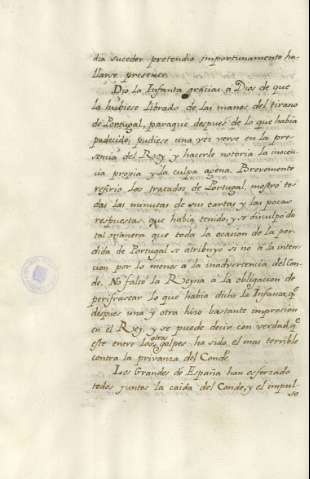 dia suceder pretendio importunamente ha-
llarse presente.
Dio la Infanta gracias a Dios de que
la hubiese librado de las manos del tirano
de Portugal, paraque despues de lo que habia
padecido, pudiese una vez verse en la pre-
sencia del Rey y hacerle notoria la inocen
cia propia y la culpa agena. Brevemente
refirio los tratados de Portugal, mostro to-
das las minutas de sus cartas y las pocas
respuestas que habia tenido, y se disculpo de
tal manera que toda la ocasion de la per-
dida de Portugal se atribuyo si no a la inten
cion por lo menos a la inadvertencia del Con-
de. No faltò la Reyna à la obligacion de
perifrasear lo que habia dicho la Infanta, q.e
despues una y otra hizo bastante impresion
en el Rey, y se puede decir con verdad q.e
este entre los otros golpes ha sido el mas terrible
contra la privanza del Conde.
Los Grandes de España han esforzado
todos juntos la caida del Conde, y el impul-
so